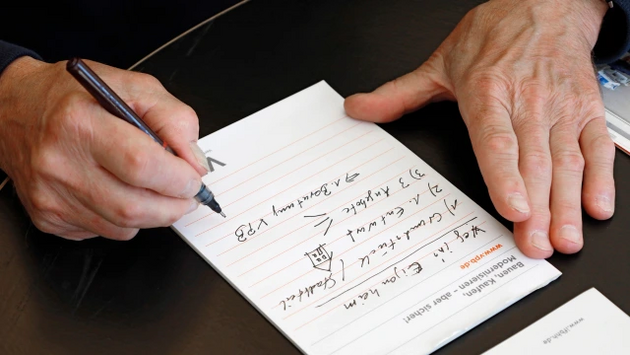 Bauen, Kaufen,
Modernisieren – aber sicher!
www.vpb.de
Weg ins Eigenheim
1) Grundstück / Stadtteil
2) 1. Entwurf
3) 3 Angebote
→ 1. Beratung VPB
V